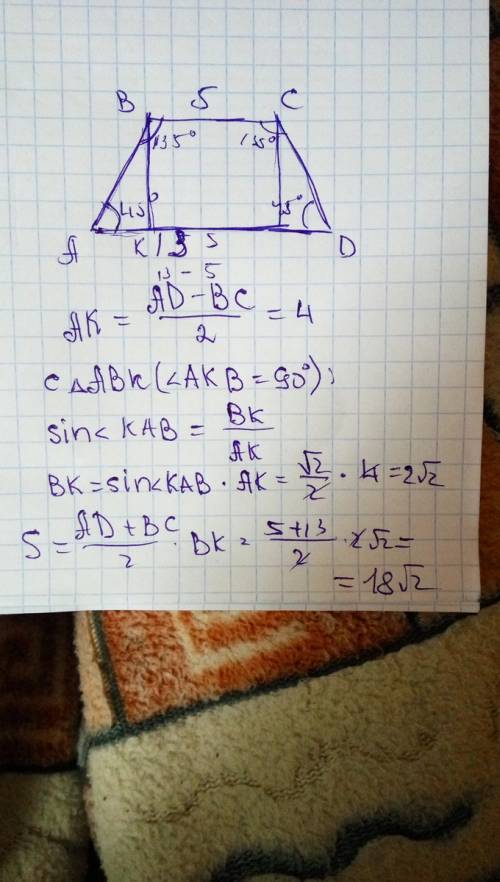 B 5 C
135° 135°
45° 45°
A K 13 5 D
13 - 5
AK = (AD - BC)/2 = 4
С △ABK (∠AKB = 90°);
sin< KAB = BK/AK
BK = sin<KAB · AK = √2/2 · 4 = 2√2
S = (AD + BC)/2 · BK = (5+13)/2 · 2√2 =
= 18√2